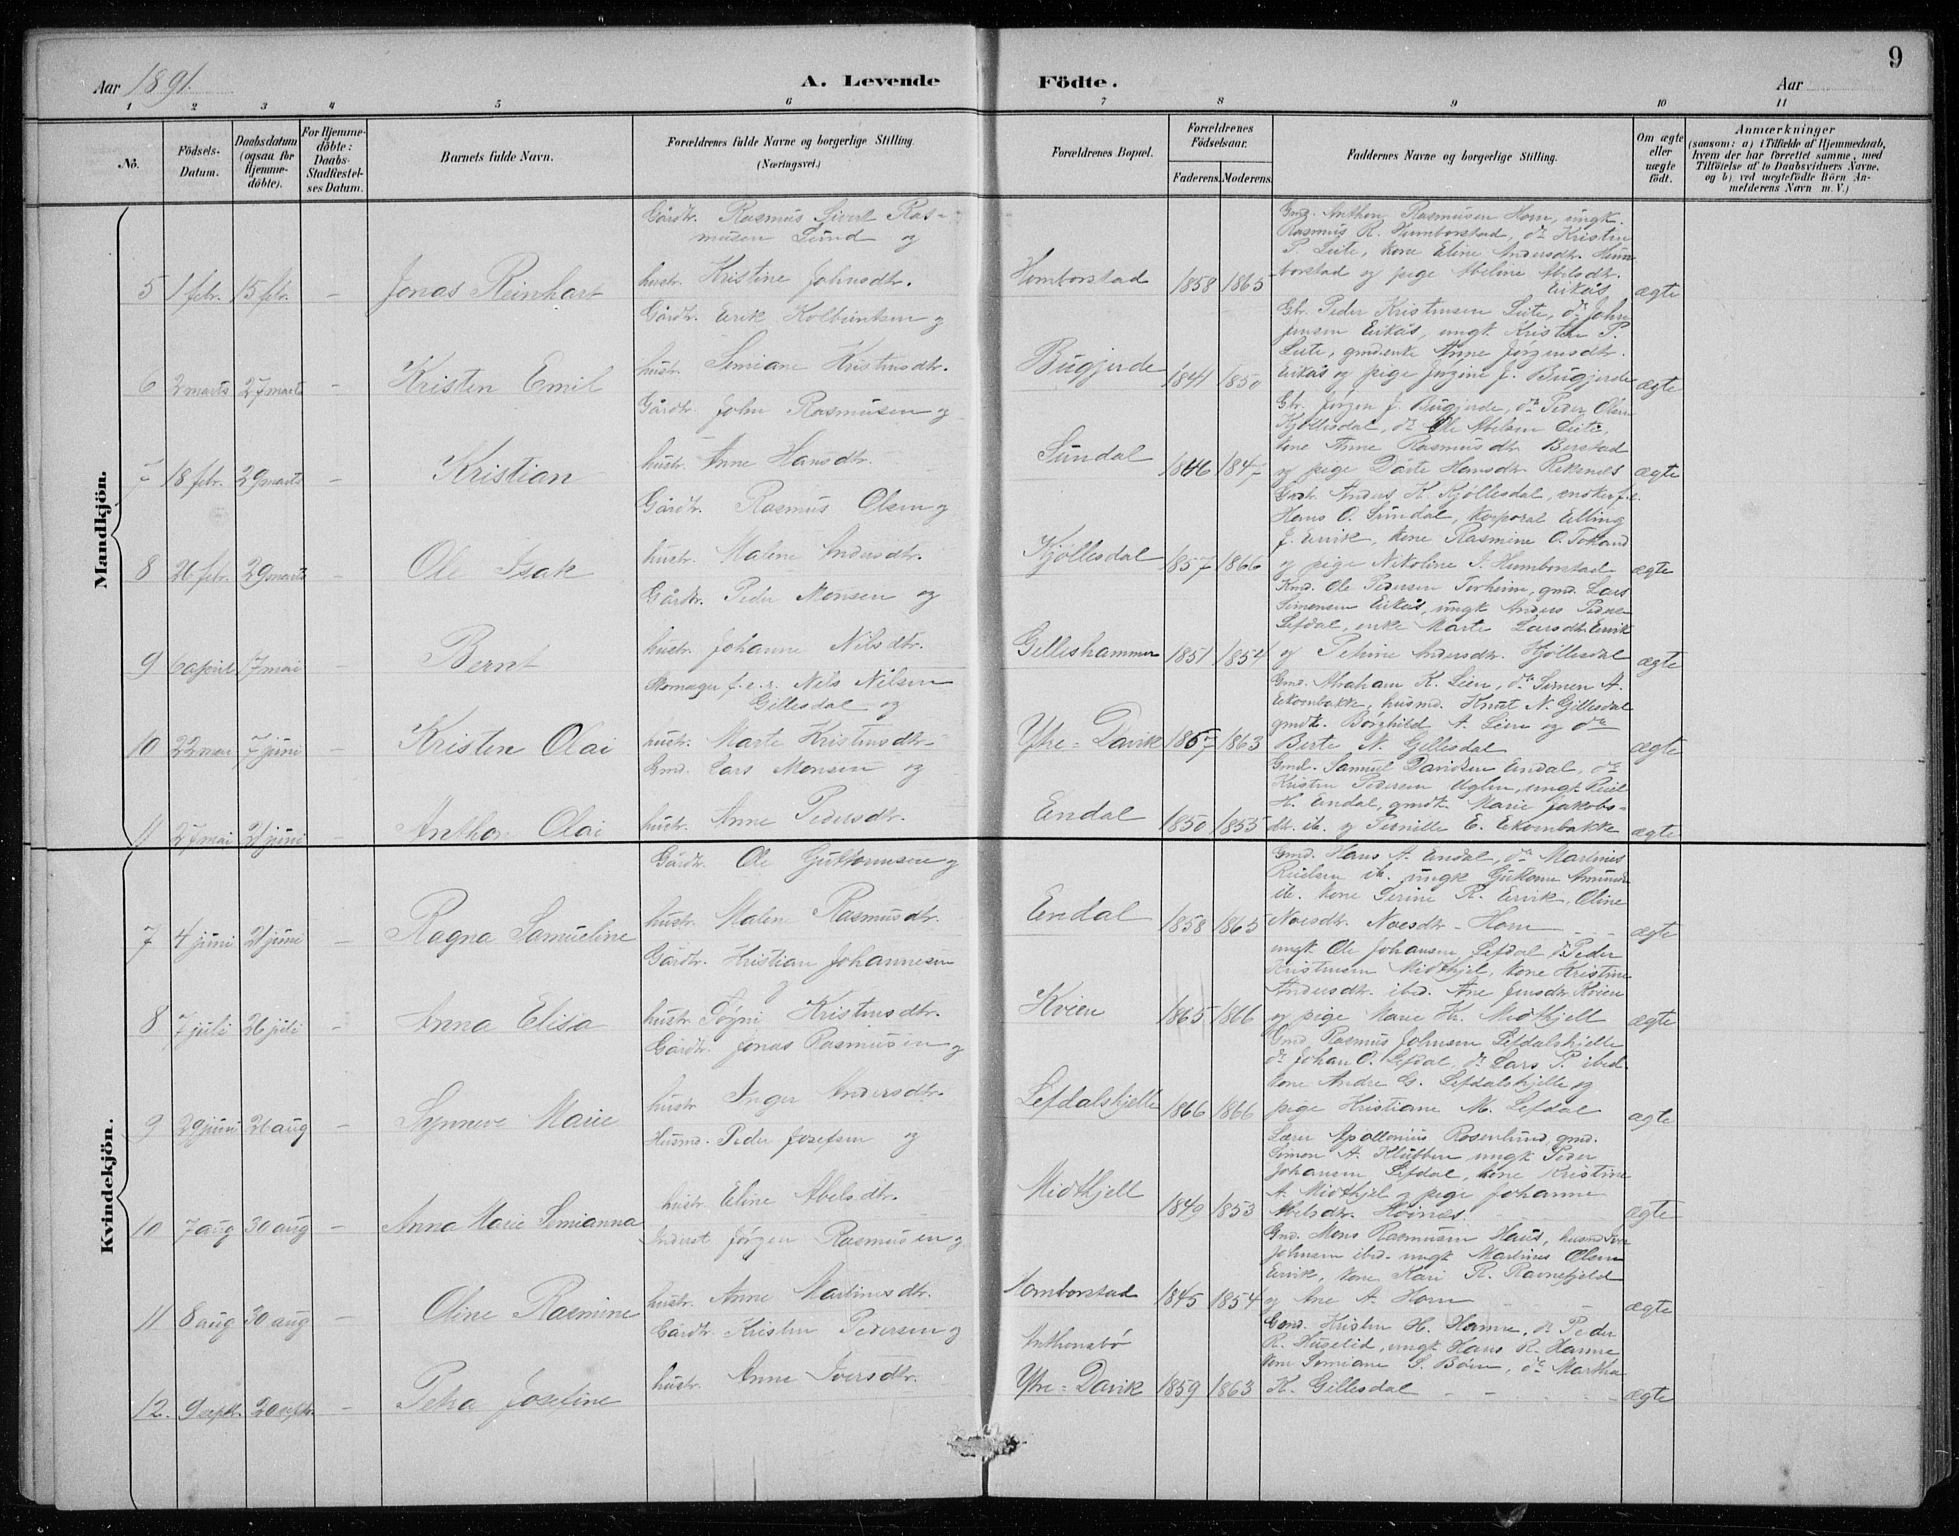 9
Aar 1891.
A. Levende Födte.
Aar
1 2 3 4 5 6 7 8 9 10 11
No.
Födsels-Datum.
Daabsdatum (ogsaa for Hjemme-döbte).
For Hjemme-döbte: Daabs-Stadfæstel-ses Datum.
Barnets fulde Navn.
Forældrenes fulde Navne og borgerlige Stilling. (Næringsvei.)
Forældrenes Bopæl.
Forældrenes Födselsaar.
Faderens. Moderens.
Faddernes Navne og borgerlige Stilling.
Om ægte eller uægte födt.
Anmærkninger
(saasom: a) i Tilfælde af Hjemmedaab,
hvem der har forrettet samme, med
Tilföielse af to Daabsvidners Navne.
og b) ved uægtefödte Börn An-
melderens Navn m. V.)
Mandkjön.
5 1 febr. 15 febr. – Jonas Reinhart
Gårdbr. Rasmus Sivert Ras-
musen Lund og
hustr. Kristine Johnsdtr.
Homborstad 1858 1865
Gmd. Anthon Rasmusen Horn, ungk.
Rasmus R. Humborstad, do Kristen
P. Leite, kone Eline Andersdtr. Hum
borstad og pige Abeline Abelsdtr.
Eikås
ægte
6 3 marts 27 marts – Kristen Emil
Gårdbr. Eirik Kolbeintsen og
hustr. Semiane Kristensdtr.
Bugjerde 1841 1850
Gbr. Peder Kristensen Leite, do John
Jensen Eikås, ungk. Kristen P.
Leite, gmdenke Anne Jørgensdtr.
Eikås og pige Jørgine J. Bugjerde
ægte
7 18 febr. 29 marts – Kristian
Gårdbr. John Rasmusen og
hustr. Anne Hansdtr.
Sundal 1846 1847
Gbr. Jørgen J. Bugjerde, do Peder Olsen
Kjøllesdal, do Ole Abelsen Leite,
kone Anne Rasmusdtr. Berstad
og pige Dorte Hansdtr. Rekenes
ægte
8 26 febr. 29 marts – Ole Isak
Gårdbr. Rasmus Olsen og
hustr. Malene Andersdtr.
Kjøllesdal 1857 1866
Gmd. Anders K. Kjøllesdal,
Hans O. Sundal, korporal Elling
J. Ervik, kone Rasmine O.
og pige Nikoline J. Humborstad
ægte
9 6 april 17 mai – Bernt
Gårdbr. Peder Monsen og
hustr. Johanne Nilsdtr.
Gilleshammer 1851 1854
Kmd. Ole Pedersen Torheim, gmd. Lars
Simensen Eikås, ungk Anders Peders
Lefdal, enke Marte Larsdtr. Ervik
og Petrine Andersdtr. Kjøllesdal
ægte
10 22 mai 7 juni – Kristen Olai
Skomager f.e.r. Nils Nilsen
Gillesdal og
hustr. Marte Kristensdtr.
Ytre-Davik 1857 1863
Gmd. Abraham K. Lien, do Simen A.
Eikornbakke, husmd. Knut N. Gillesdal
gmdk. Borghild A. Lien og do
Berte N. Gillesdal
ægte
11 27 mai 21 juni – Anthon Olai
Gmd. Lars Monsen og
hustr. Anne Pedersdtr.
Endal 1850 1855
Gmd. Samuel Davidsen Endal, do
Kristen Pedersen Uglen, ungk Reiel
H. Endal, gmdk. Marie Jakobs-
dtr. ib. og Pernille E. Eikornbakke
ægte
Kvindekjön.
7 4 juni 21 juni – Ragna Samueline
Gårdbr. Ole Guttormsen og
hustr. Malene Rasmusdtr.
Endal 1858 1865
Gmd. Hans A. Endal, do Martines
Reielsen ib. ungk Guttorm Amunds
ib. kone Serine R. Ervik, Oline
Noesdtr. Noesdtr - Horn
ægte
8 7 juli 26 juli – Anna Elisa
Gårdbr. Kristian Johannesen
og
hustr. Søgni Kristensdtr.
Kvien 1865 1866
ungk. Ole Johansen Lefdal, do Peder
Kristensen Midthjel, kone Kristine
Andersdtr. ibid. Ane Jensdtr. Kvien
og pige Marie Kr. Midthjell
ægte
9 29 juni 26 aug – Synneve Marie
Gårdbr. Jonas Rasmusen og
hustr. Inger Andersdtr.
Lefdalshjelle 1866 1866
Gmd Rasmus Johnsen Lefdalshjelle
do Johan O. Lefdal, do Lars P. ibid
kone Andre G. Lefdalshjelle og
pige Kristiane M. Lefdal
ægte
10 7 aug 30 aug – Anna Marie Semianna
Husmd. Peder Josefsen og
hustr. Eline Abelsdtr.
Midthjell 1849 1853
Lærer Apollonius Rosenlund, gmd.
Simon A. Klubben ungk Peder
Johansen Lefdal, kone Kristine
A. Midthjel og pige Johanne
Abelsdtr. Hoines.
ægte
11 8 aug 30 aug – Oline Rasmine
Inderst Jørgen Rasmusen og
hustr. Anne Martinesdtr.
Homborstad 1845 1854
Gmd Mons Rasmusen Haus, husmd Iver
Johnsen ibid. ungk Martines Olsen
Ervik, kone Kari R. Ravnefjeld
og Ane A. Horn
ægte
12. 9 septr. 20 septr. – Petra Josefine
Gårdbr. Kristen Pedersen og
hustr. Anne Iversdtr.
Anthonsbø
Ytre-Davik 1859 1863
Gmd. Kristen H. Hamre, do Peder
R. Huselid, ungk Hans R. Hamre
kone Semiane S. Böen, do Martha
K. Gillesdal
ægte